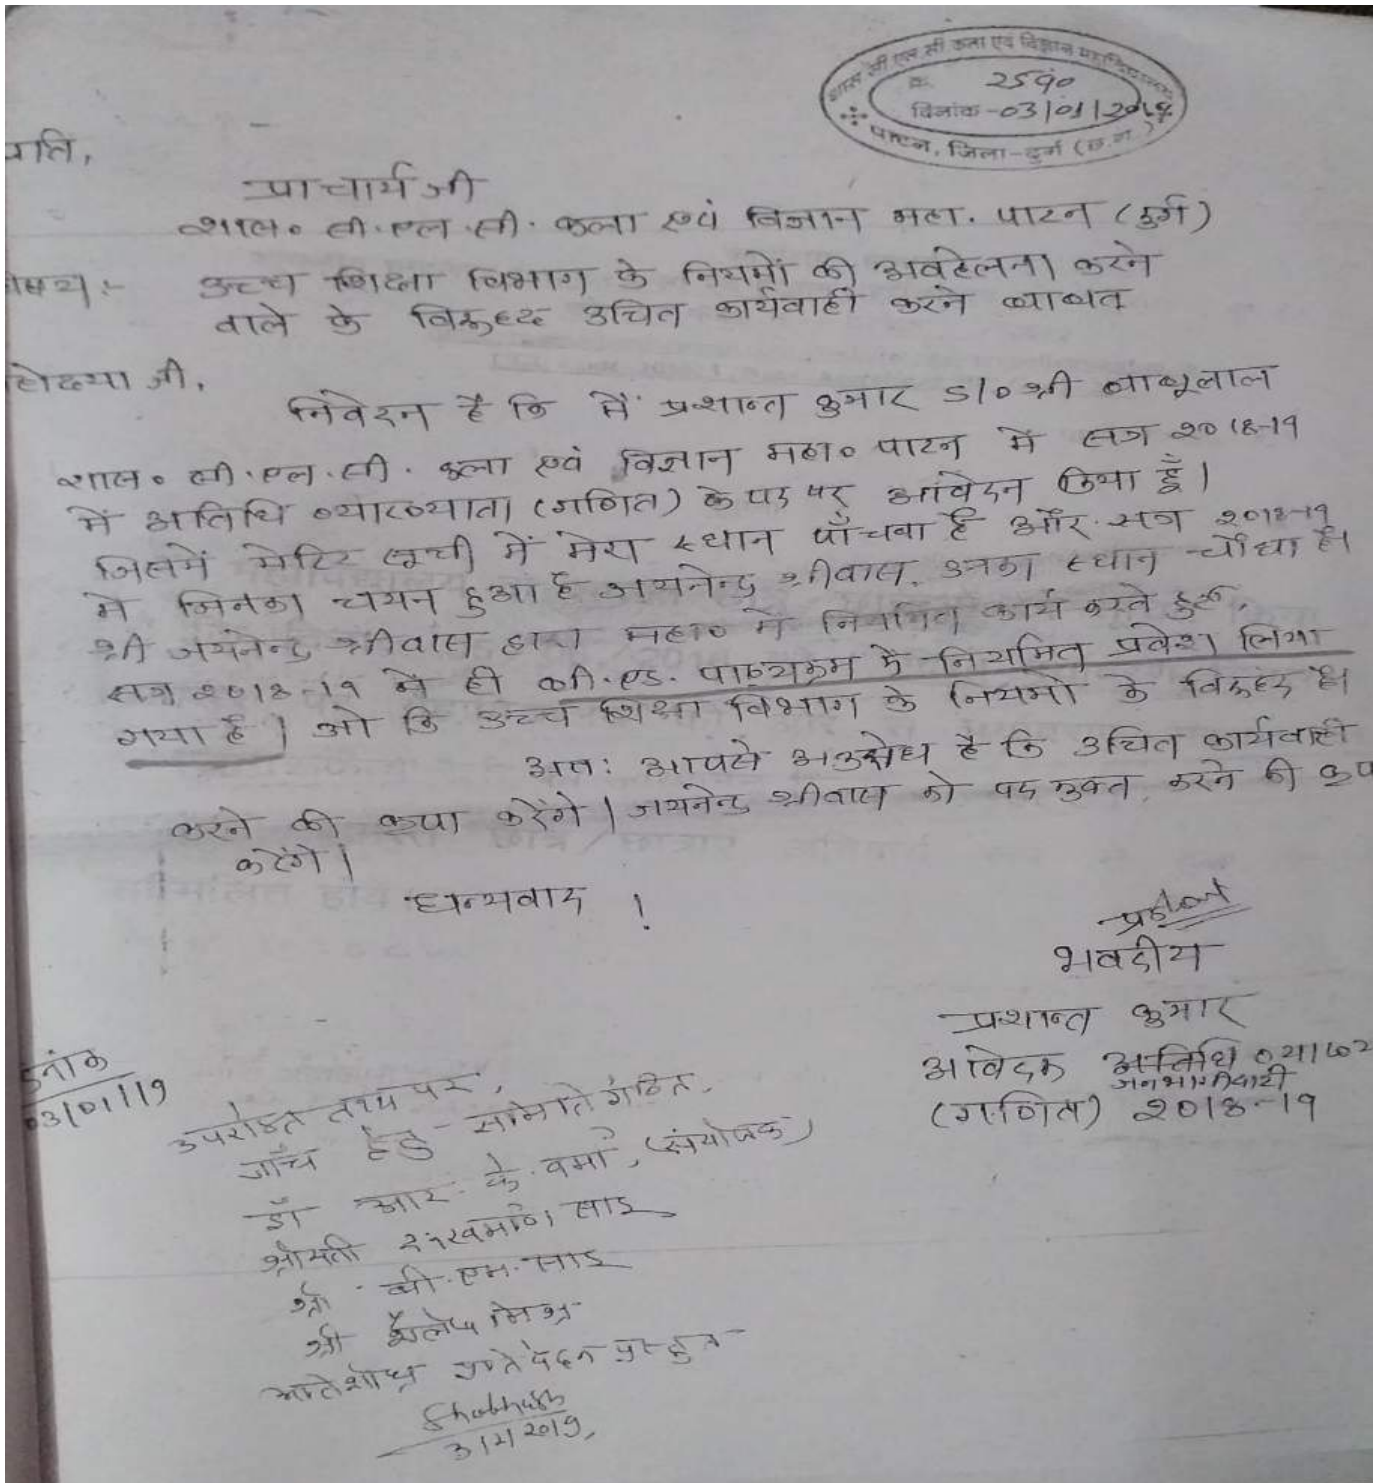 शास सी एल सी कला एवं विज्ञान महाविद्यालय
क्र. 2590
दिनांक -03/01/2019
पाटन, जिला-दुर्ग (छ.ग.)
प्रति,
प्राचार्य जी
शास० सी.एल.सी. कला एवं विज्ञान महा. पाटन (दुर्ग)
विषय:- उच्च शिक्षा विभाग के नियमों की अवहेलना करने
वाले के विरूध्द उचित कार्यवाही करने बाबत
होदया जी,
निवेदन है कि मैं प्रशान्त कुमार S/० श्री बाबूलाल
शास० सी.एल.सी. कला एवं विज्ञान महा० पाटन में सत्र 2018-19
में अतिथि व्याख्याता (गणित) के पद पर आवेदन किया हूँ।
जिसमें मेरिट सूची में मेरा स्थान पाँचवा है और सत्र 2018-19
में जिनका चयन हुआ है जयनेन्द्र श्रीवास, उनका स्थान चौथा है।
श्री जयनेन्द्र श्रीवास द्वारा महा० में नियमित कार्य करते हुए,
सत्र 2018-19 में ही बी.एड. पाठ्यक्रम में नियमित प्रवेश लिया
गया है। जो कि उच्च शिक्षा विभाग के नियमों के विरूध्द है।
अतः आपसे अनुरोध है कि उचित कार्यवाही
करने की कृपा करेंगे। जयनेन्द्र श्रीवास को पद मुक्त करने की कृप
करेंगे।
धन्यवाद !
भवदीय
प्रशान्त कुमार
आवेदक अतिथि व्याख्य
जनभागीदारी
(गणित) 2018-19
दिनांक
03/01/19
उपरोक्त तथ्य पर,
जाँच हेतु समिति गठित,
डॉ आर. के. वर्मा, (संयोजक)
श्रीमती साहू
श्री बी.एम. साहू
श्री शैलेष मिश्र
अतिशीघ्र प्रतिवेदन प्रस्तुत
3/1/2019,